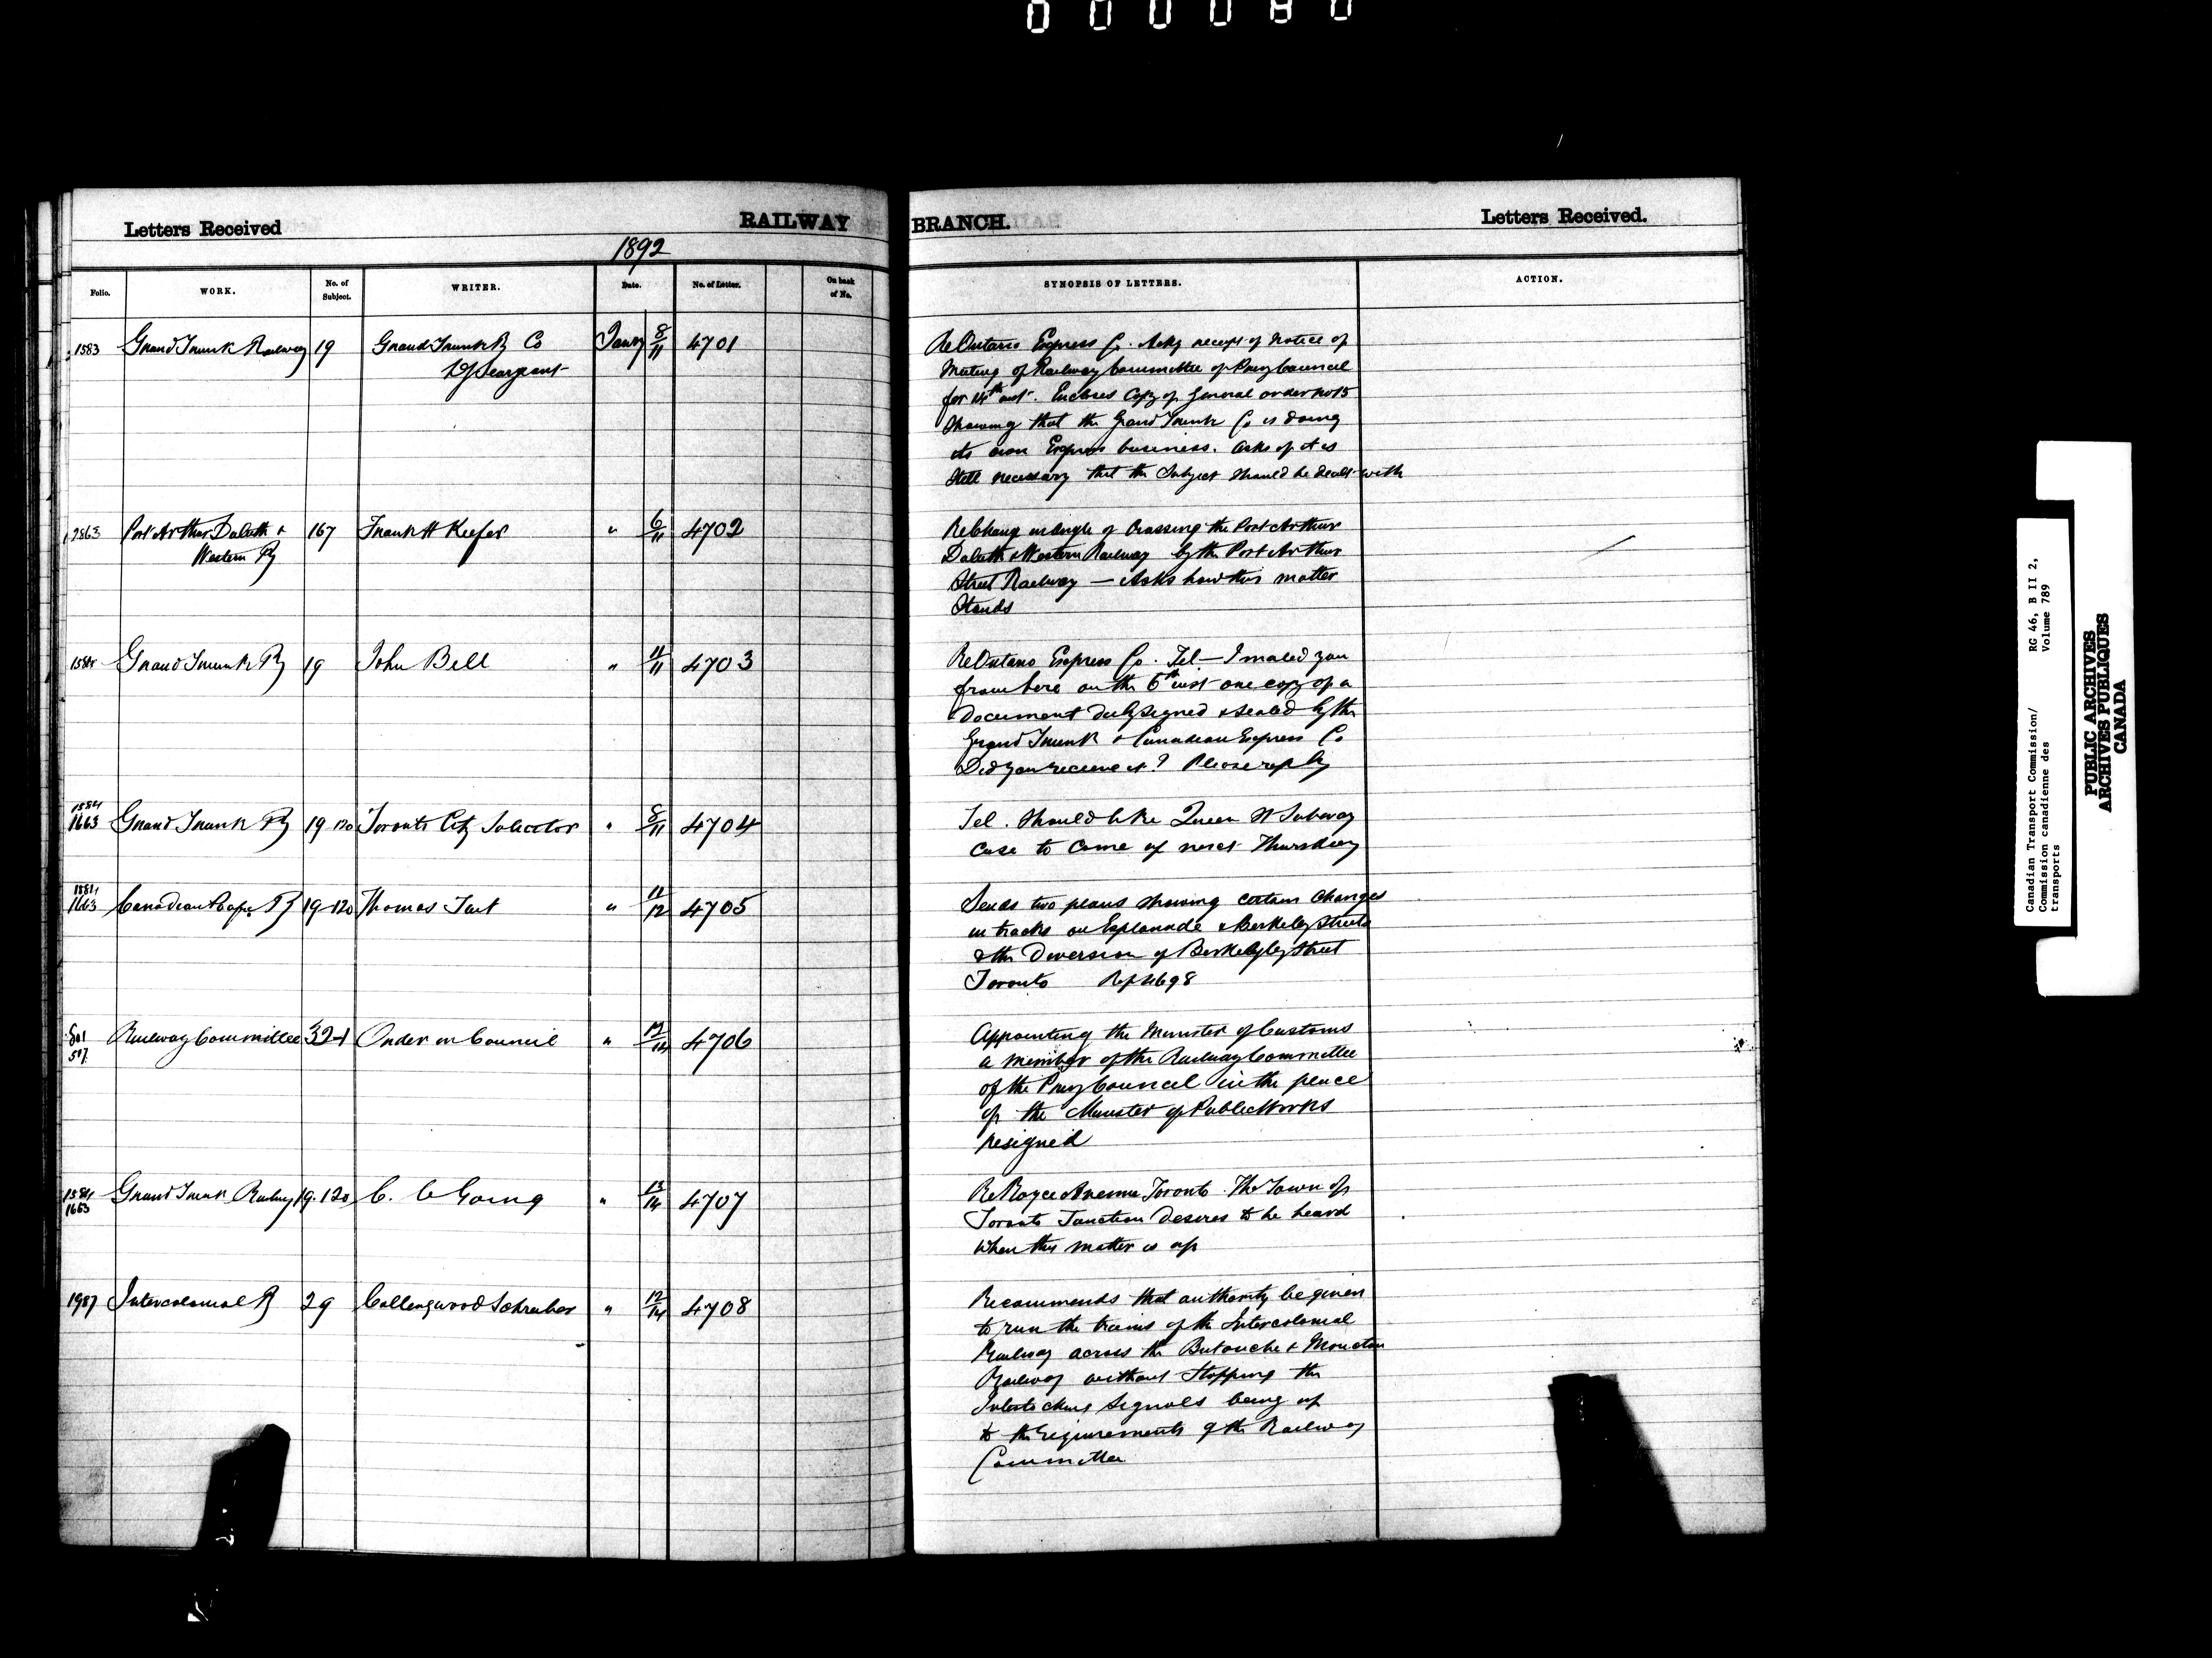 000080
Letters Received
RAILWAY
BRANCH.
Letters Received.
1892
Folio.
WORK.
No. of Subject.
WRITER.
Date.
No. of Letter.
On back of No.
SYNOPSIS OF LETTERS.
ACTION.
1583 Grand Trunk Railway 19 Grand Trunk Ry Co Jany 8/11 4701
Seargeant
Re Ontario Express Co. Ackg receipt of notice of
Meeting of Railway Committee of Privy Council
for 14th inst. Encloses Copy of General order no 15
Showing that the Grand Trunk Co is doing
its own Express business. Asks if it is
Still necessary that the Subject should be dealt with
2863 Port Arthur Duluth & 167 Frank H Keefer " 6/11 4702
Western Ry
Re Change in angle of Crossing the Port Arthur
Duluth & Western Railway by the Port Arthur
Street Railway — Asks how this matter
Stands
Grand Trunk Ry 19 John Bell " 11/11 4703
Re Ontario Express Co. Tel — I mailed you
from here on the 6th inst one copy of a
Document duly signed & sealed by the
Grand Trunk & Canadian Express Co
Did you receive it? Please reply
1584
1663 Grand Trunk Ry 19 120 Toronto City Solicitor " 8/11 4704
Tel. Should like Queen St Subway
Case to Come up next Thursday
1584
1663 Canadian Pacific Ry 19-120 Thomas Tait " 11/12 4705
Sends two plans showing certain Changes
in tracks on Esplanade & Berkeley Streets
& the Diversion of Berkeley Street
Toronto Ref 4698
Railway Committee 32-1 Order in Council " 12/14 4706
Appointing the Minister of Customs
a member of the Railway Committee
of the Privy Council in the place
of the Minister of Public Works
resigned
1584
1663 Grand Trunk Railway 19.120 C. C Going " 13/14 4707
Re Royce Avenue Toronto. The Town of
Toronto Junction Desires to be heard
When this matter is up
1987 Intercolonial Ry 29 Collingwood Schreiber " 12/14 4708
Recommends that authority be given
to run the trains of the Intercolonial
Railway across the Butouche & Moncton
Railway without Stopping the
Interlocking Signals being up
to the requirements of the Railway
Committee
Canadian Transport Commission/
Commission canadienne des
transports
RG 46, B II 2,
Volume 789
PUBLIC ARCHIVES
ARCHIVES PUBLIQUES
CANADA